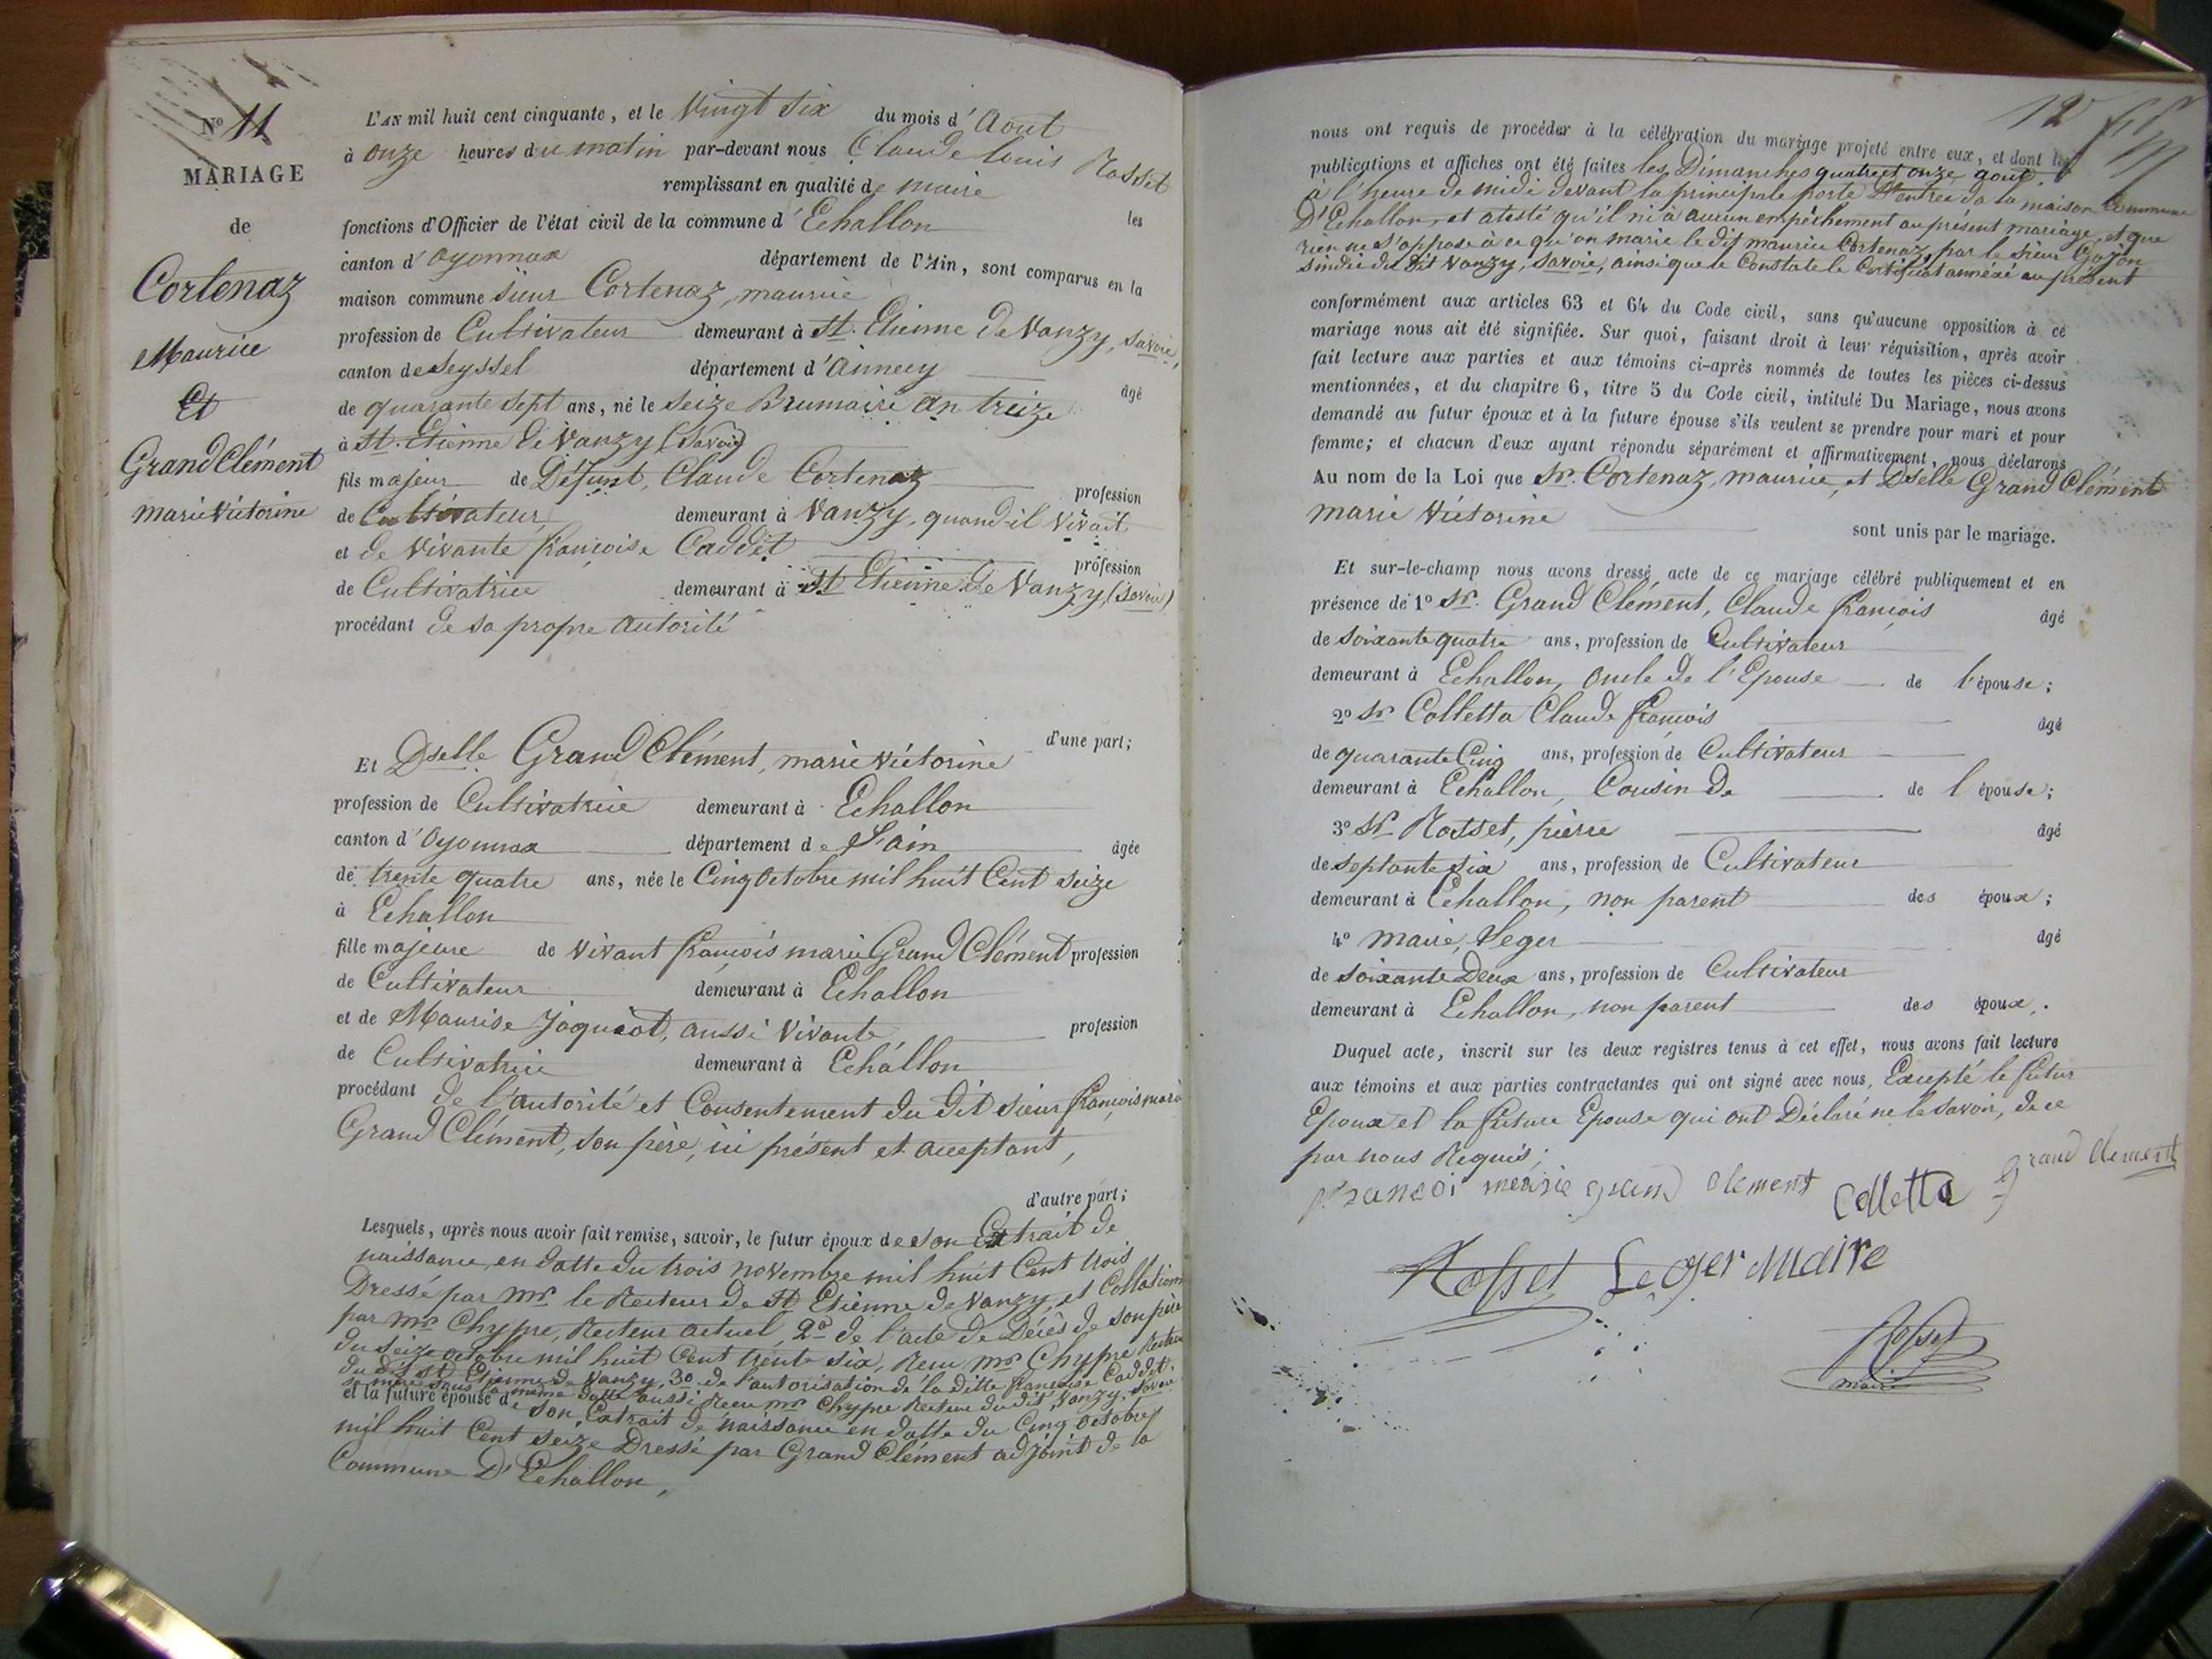 N.o 11
MARIAGE
de
Cortenaz
Maurice
Et
Grand Clément
marie Victorine
L'AN mil huit cent cinquante, et le Vingt Six du mois d'Aout
à onze heures du matin par-devant nous Claude Louis Rosset
remplissant en qualité de maire les
fonctions d'Officier de l'état civil de la commune d'Echallon
canton d'Oyonnax département de l'Ain, sont comparus en la
maison commune sieur Cortenaz, maurice
profession de Cultivateur demeurant à St. Etienne de Vanzy, Savoie,
canton de Seyssel département d'Annecy âgé
de quarante sept ans, né le Seize Brumaire an treize
à St. Etienne de Vanzy (Savoie)
fils majeur de Défunt, Claude Cortenaz profession
de Cultivateur, demeurant à Vanzy, quand il vivait
et de Vivante françoise Caddet profession
de Cultivatrice demeurant à St Etienne de Vanzy, (Savoie)
procédant de sa propre autorité
d'une part;
Et Dselle Grand Clément, marie victorine
profession de Cultivatrice demeurant à Echallon
canton d'Oyonnax département de L'ain âgée
de trente quatre ans, née le Cinq Octobre mil huit Cent seize
à Echallon
fille majeure de vivant françois marie Grand Clément profession
de Cultivateur demeurant à Echallon
et de Maurise Jaquiot, aussi vivante profession
de Cultivatrice demeurant à Echallon
procédant de l'autorité et Consentement du dit sieur françois marie
Grand Clément, son père, ici présent et acceptant,
d'autre part;
Lesquels, après nous avoir fait remise, savoir, le futur époux de son Extrait de
naissance, en datte du trois novembre mil huit Cent trois
Dressé par mr. le Recteur de St Etienne de Vanzy, et Collationé
par mr Chypre, Recteur actuel, 2o de l'acte de Décès de son père
du seize octobre mil huit Cent trente six, Recu mr Chypre Recteur
du dit St Etienne de Vanzy, 3o de l'autorisation de la ditte francoise Caddet.
sa mère sous la même datte aussi Recu mr Chypre Recteur dudit Vanzy, Savoie
et la future épouse de son Extrait de naissance en datte du Cinq octobre
mil huit Cent seize Dressé par Grand Clément adjoint de la
Commune D'Echallon,
12
nous ont requis de procéder à la célébration du mariage projeté entre eux, et dont les
publications et affiches ont été faites les Dimanches quatre et onze aout
à l'heure de midi devant la principale porte D'entrée de la maison Commune
D'Echallon, et atesté qu'il ni à aucun empêchement au présent mariage, et que
rien ne s'oppose à ce qu'on marie le dit maurice Cortenaz, par le sieur
sindic du dit Vanzy, Savoie, ainsi que le Constate le Certificat annéxé au présent
conformément aux articles 63 et 64 du Code civil, sans qu'aucune opposition à ce
mariage nous ait été signifiée. Sur quoi, faisant droit à leur réquisition, après avoir
fait lecture aux parties et aux témoins ci-après nommés de toutes les pièces ci-dessus
mentionnées, et du chapitre 6, titre 5 du Code civil, intitulé Du Mariage, nous avons
demandé au futur époux et à la future épouse s'ils veulent se prendre pour mari et pour
femme; et chacun d'eux ayant répondu séparément et affirmativement, nous déclarons
Au nom de la Loi que Sr. Cortenaz, maurice, et Dselle Grand Clément
marie Victorine
sont unis par le mariage.
Et sur-le-champ nous avons dressé acte de ce mariage célébré publiquement et en
présence de 1o Sr. Grand Clément, Claude françois âgé
de soixante quatre ans, profession de Cultivateur
demeurant à Echallon, oncle de l'Epouse de l'épouse;
2o Sr Colletta Claude françois âgé
de quarante Cinq ans, profession de Cultivateur
demeurant à Echallon, Cousin de de l'épouse;
3o Sr Rosset, pierre âgé
de septante six ans, profession de Cultivateur
demeurant à Echallon, non parent des époux;
4o Maire, Leger âgé
de soixante Deux ans, profession de Cultivateur
demeurant à Echallon, non parent des époux.
Duquel acte, inscrit sur les deux registres tenus à cet effet, nous avons fait lecture
aux témoins et aux parties contractantes qui ont signé avec nous, Excepté le futur
Epoux et la future Epouse qui ont Déclaré ne le savoir, de ce
par nous Requis;
francoi marie grand clement Colletta grand clement
Rosset Leger Maire
Rosset
maire